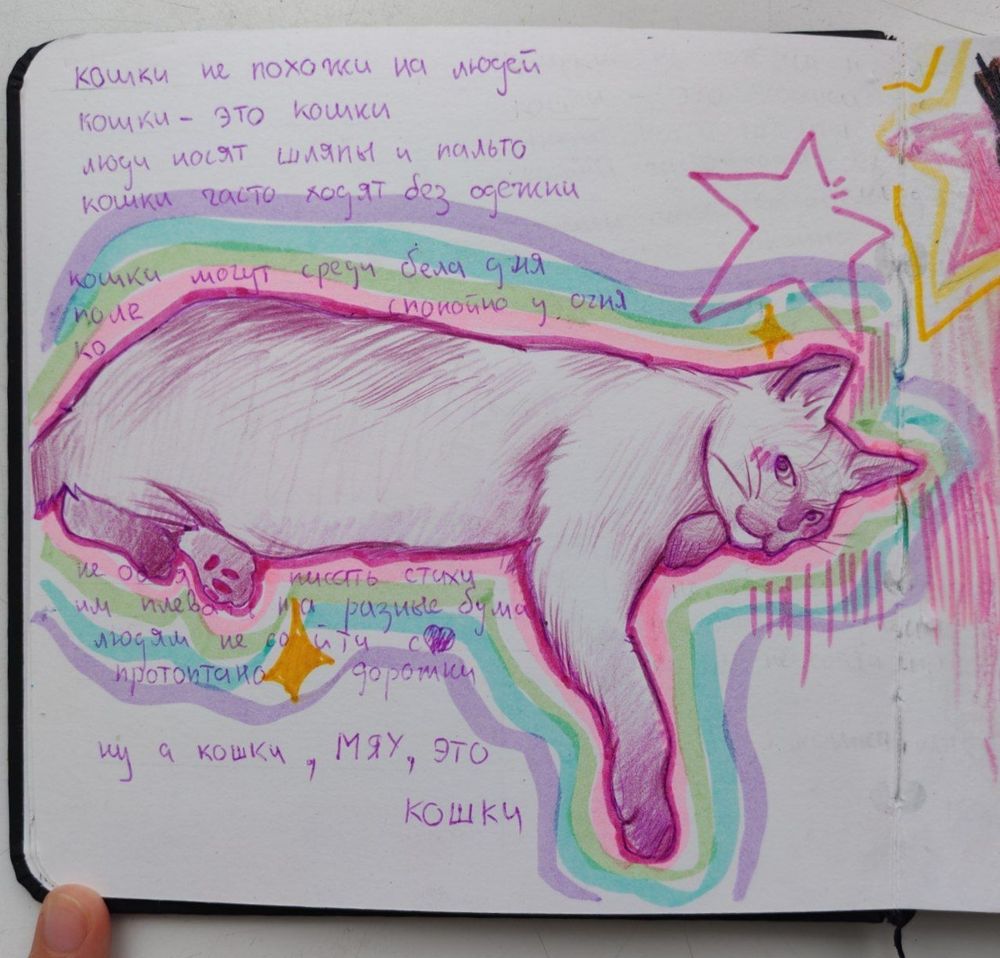 кошки не похожи на людей
кошки - это кошки
люди носят шляпы и пальто
кошки часто ходят без одежки
кошки могут среди бела дня
поле спокойно у огня
ко
не писать стихи
им плева на разные бума
людям не с
протоптано дорожки
ну а кошки, МЯУ, это
кошки